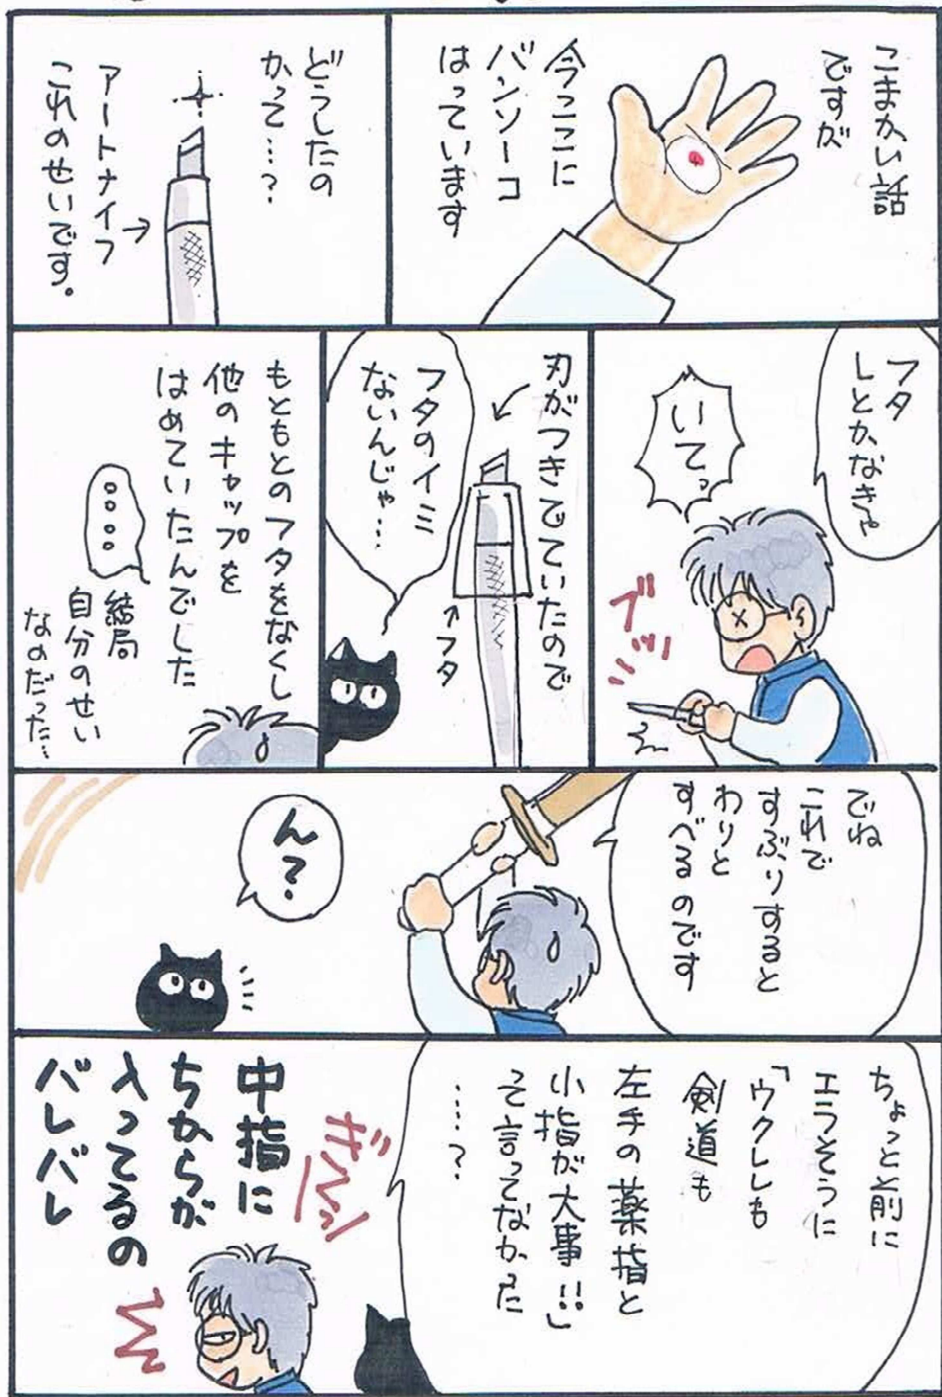 こまかい話
ですが
今ここに
バンソーコ
はっています
どうしたの
かって…?
アートナイフ
これのせいです。
フタ
しとかなきゃ
いてっ
ブツッ
刃がつきでていたので
フタ
フタのイミ
ないんじゃ…
もともとのフタをなくし
他のキャップを
はめていたんでした
。。。。
結局
自分のせい
なのだった…
でね
これで
すぶりすると
わりと
すべるのです
ん?
ちょっと前に
エラそうに
「ウクレレも
剣道も
左手の薬指と
小指が大事!!」
って言ってなかった
…?
ぎくっ
中指に
ちからが
入ってるの
バレバレ